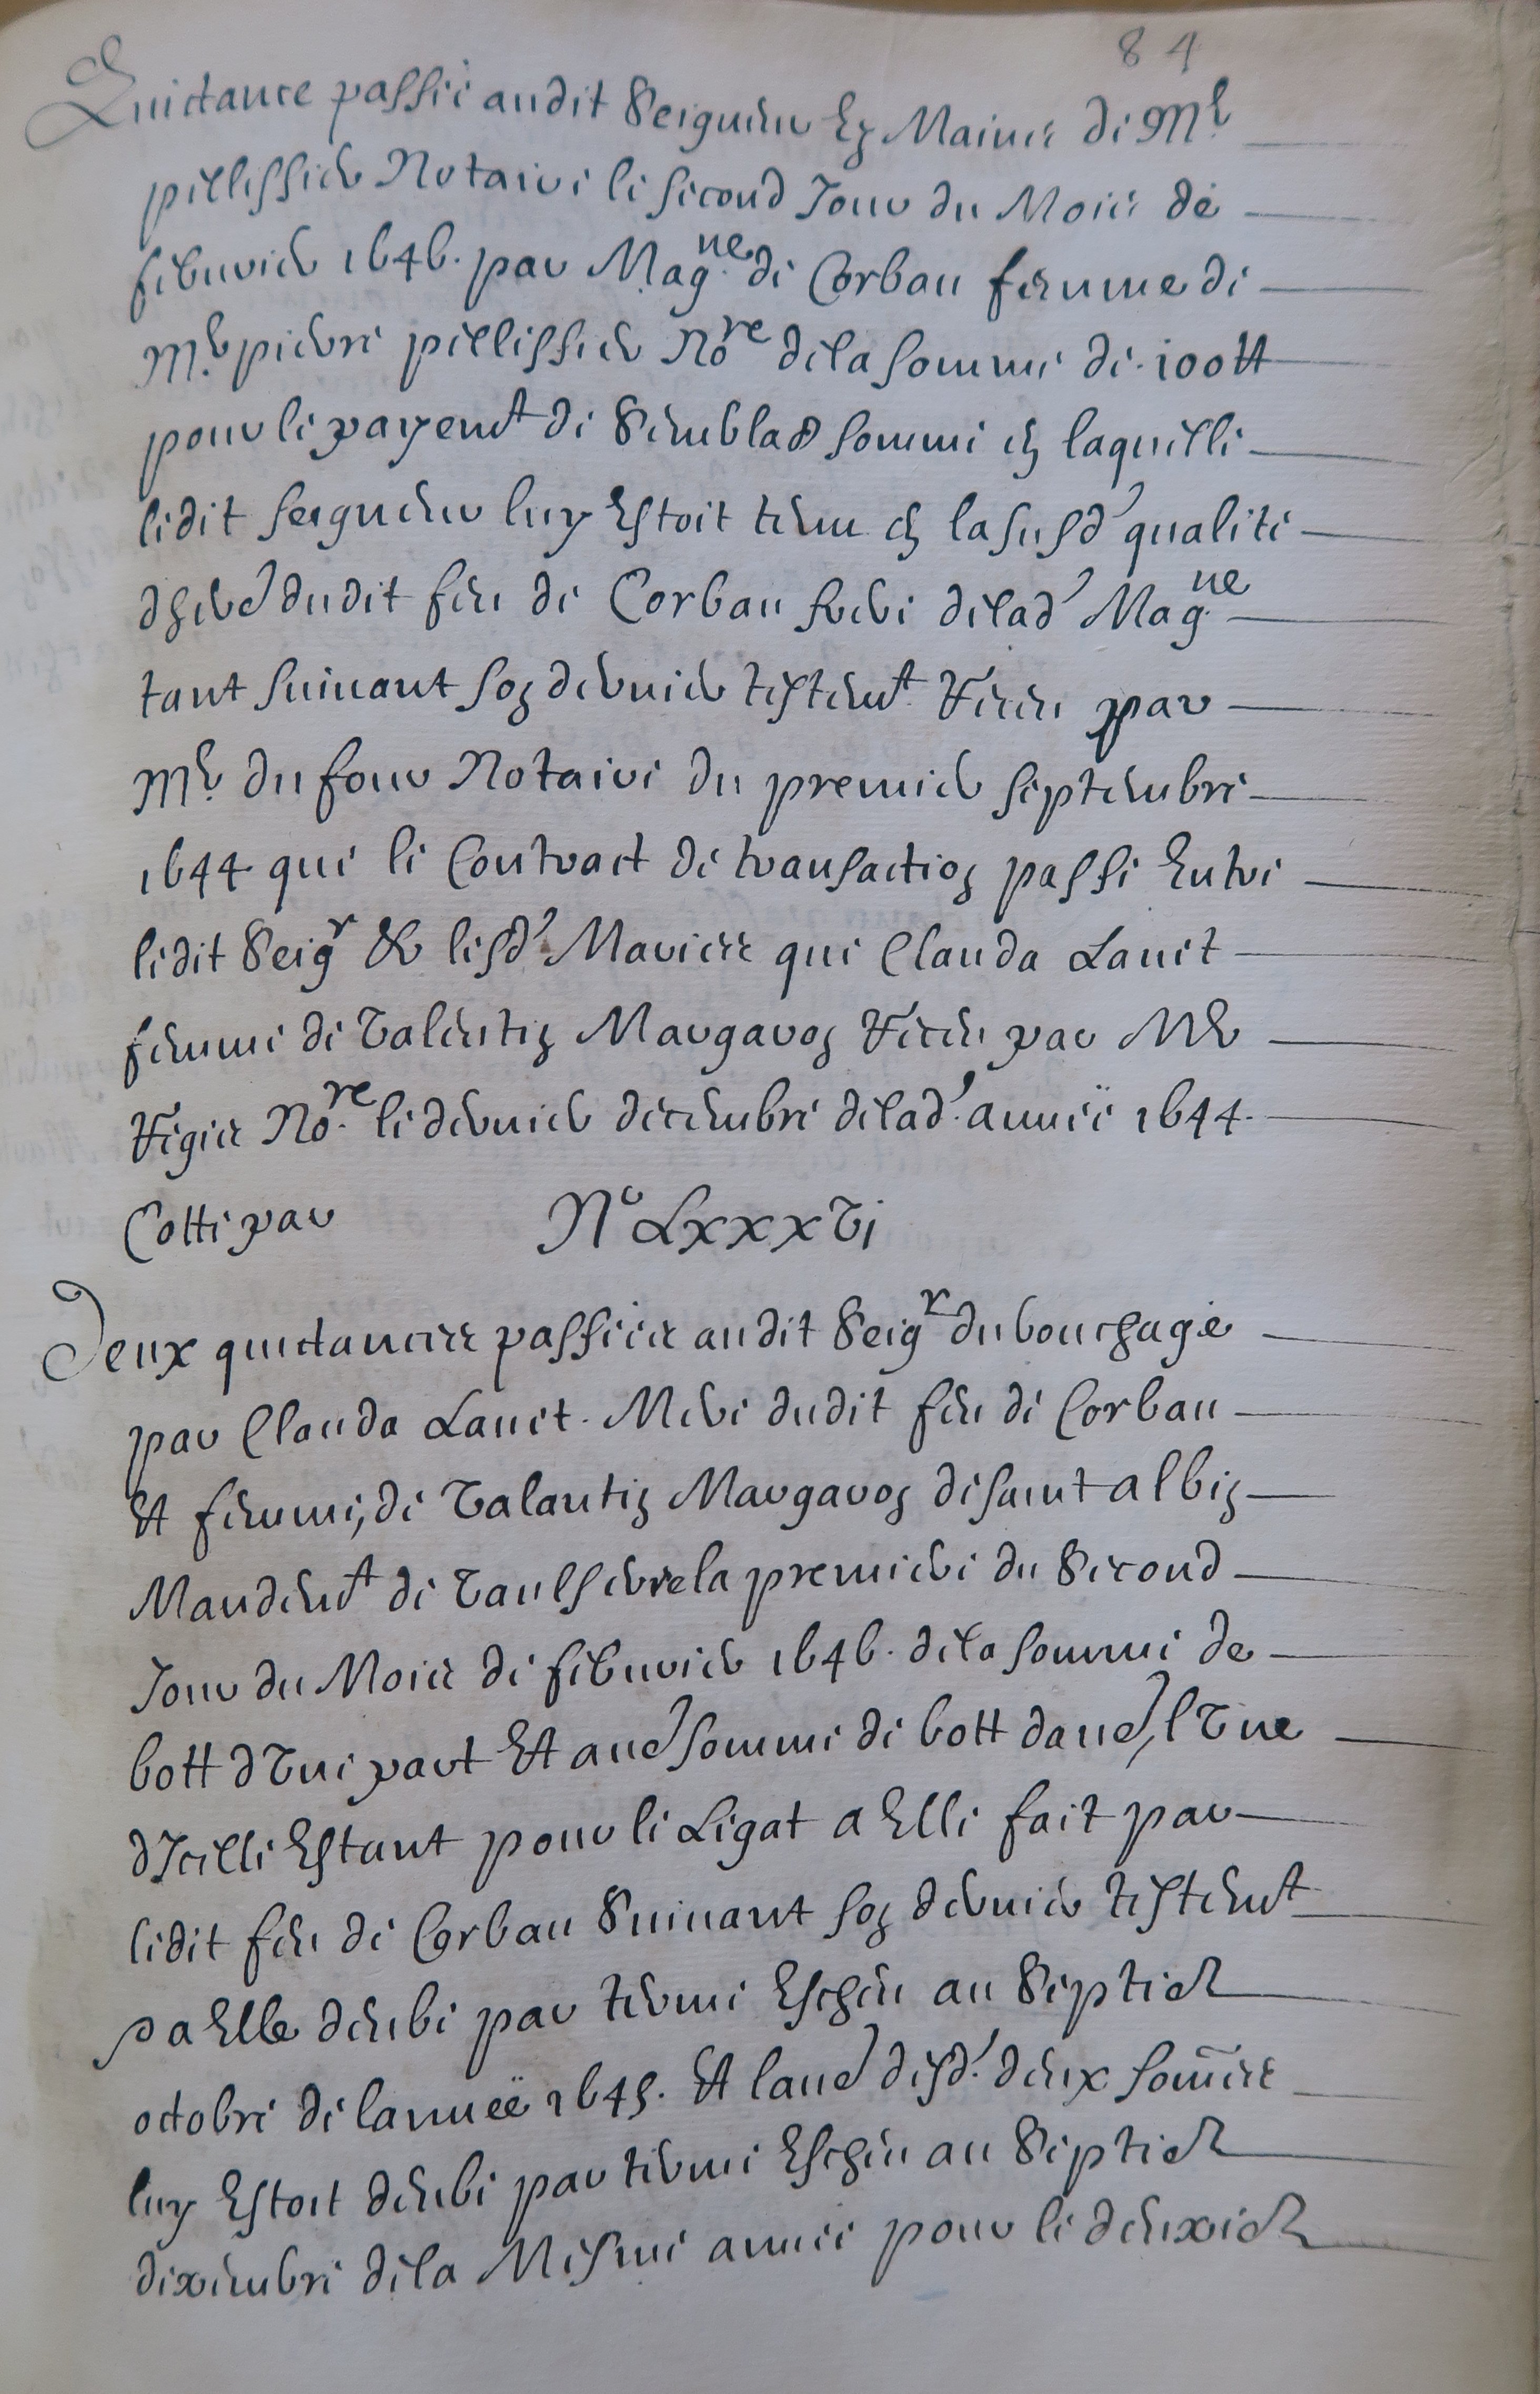 84
Quictance passée audit Seigneur Ez Mains de Me
pellissier Notaire le second Jour du Mois de
febvrier 1646. par Magne. de Corbau femme de
Me. pierre pellissier Nore de la somme de 100 tt
pour le payemt de Semblad somme en laquelle
ledit seigneur luy Estoit tenu en la susd' qualité
dherd dudit feu de Corbau frere de lad' Magne.
tant suivant son dernier testemt Receu par
Me. du four Notaire du premier septembre
1644 que le Contract de transaction passé Entre
ledit Seigr & lesd' Mariés que Clauda Lanet
femme de Valentin Margaron Receu par Me
Vigier Nore. le dernier decembre de lad'. année 1644.
Cotté par No Lxxxvj
Deux quictances passées audit Seigr du bouchage
par Clauda Lanet. Mere dudit feu de Corbau
Et femme, de Valantin Margaron disant albin
Mandemt de Vaulserre la premiere du Second
Jour du Mois de febvrier 1646. de la somme de
60 tt d'Une part Et aud somme de 60 tt daud, l'Une
d'Icelle Estant pour le Legat a Elle fait par
ledit feu de Corbau Suivant son dernier testemt
& a Elle deube par terme Escheu au Septie
octobre de lannée 1645. Et laud desd'. deux sommes
luy Estoit deube par terme Escheu au Septie
dexembre de la Mesme année pour le deuxie